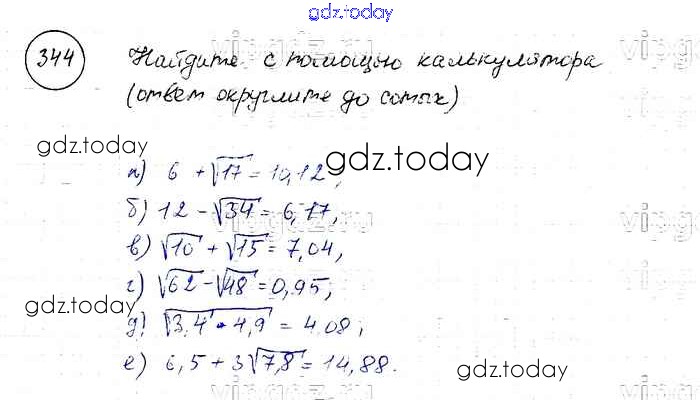 gdz.today
344 Найдите с помощью калькулятора
(ответ округлите до сотых)
gdz.today
gdz.today
а) 6 + √17 = 10,12,
б) 12 - √34 = 6,17,
в) √10 + √15 = 7,04,
г) √62 - √48 = 0,95;
gdz.today
д) √3,4 · 4,9 = 4.08;
е) 6,5 + 3√7,8 = 14,88.
gdz.today